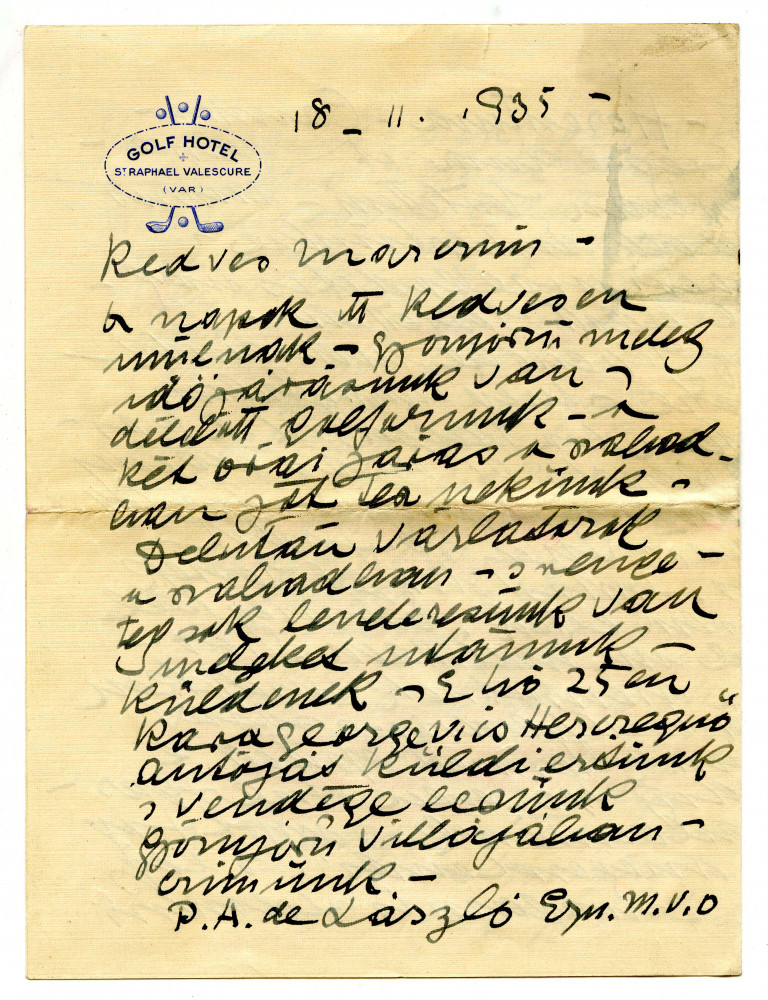 18 - 11. 1935 -
GOLF HOTEL
ST RAPHAEL VALESCURE
(VAR)
Kedves Marcsim -
A napok itt kedvesen
múlnak - gyönyörű meleg
időjárásunk van -
délelőtt golfozunk - a
két órai járás a szabad-
ban jót tesz nekünk -
Délután várlatozok
a szabadban - s renge-
teg sok levelezésünk van
melyeket utánunk
küldenek - E hó 25 én
Karageorgevics Hercegnő
autóját küldi értünk
s vendége leszünk
gyönyörű villájában -
címünk. -
P. A. de László Esq. M.V.O